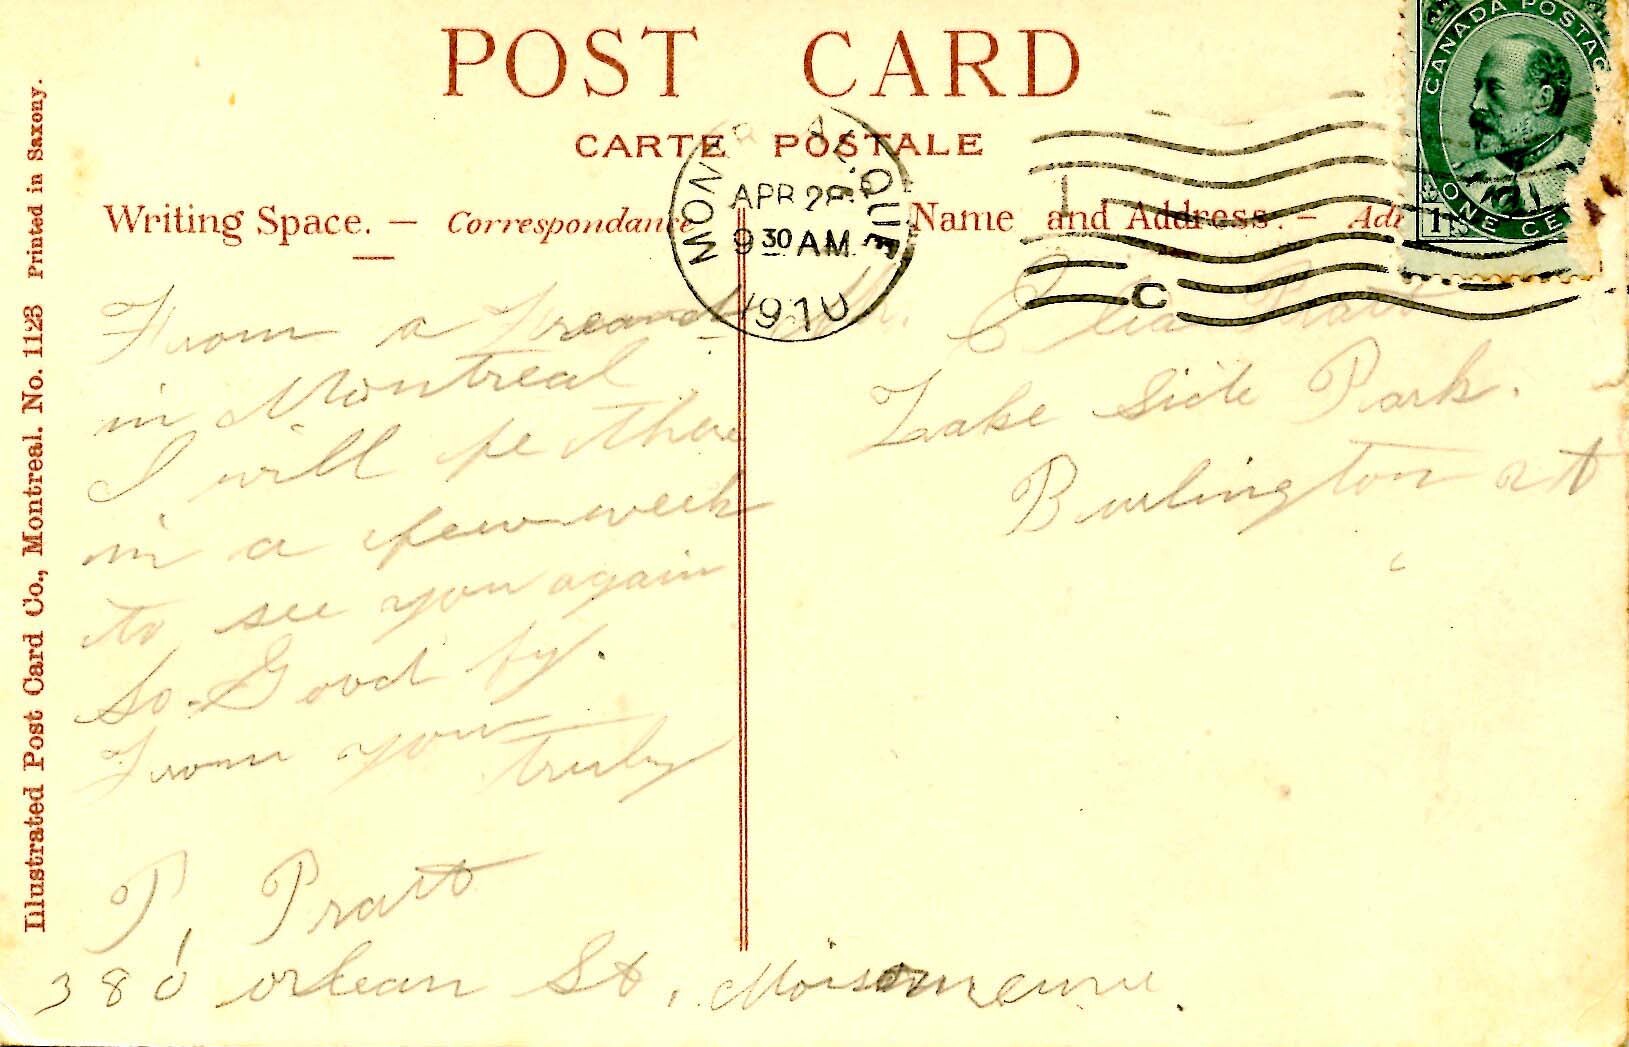 POST CARD
CARTE POSTALE
Writing Space. — Correspondance
Name and Address. —
CANADA POSTAG
ONE CE
1
MON QUE
APR 28
9 30 AM
1910
C
From a Freand
in Montreal
I will be there
in a few week
to see you again
So. Good by.
From your
truly
P. Pratt
380 Orlean St,
Pratt
Lake Side Park.
Burlington
Illustrated Post Card Co., Montreal. No. 1123 Printed in Saxony.